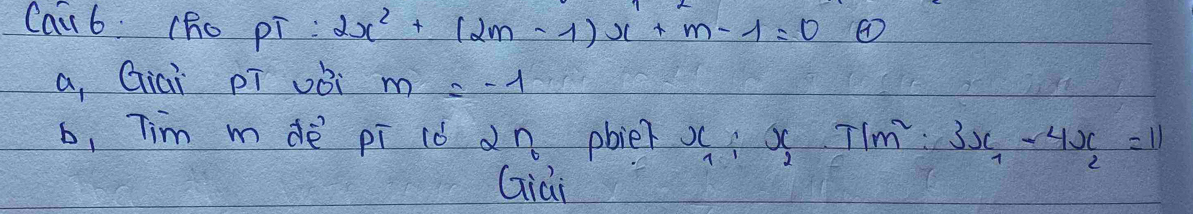 Câu 6. Cho pT : 2x² + (2m - 1)x + m - 1 = 0 ④
a, Giải pT với m = -1
b, Tìm m để pT có 2 n₀ pbiệt x₁ ; x₂ T/m² : 3x₁ - 4x₂ = 11
Giải